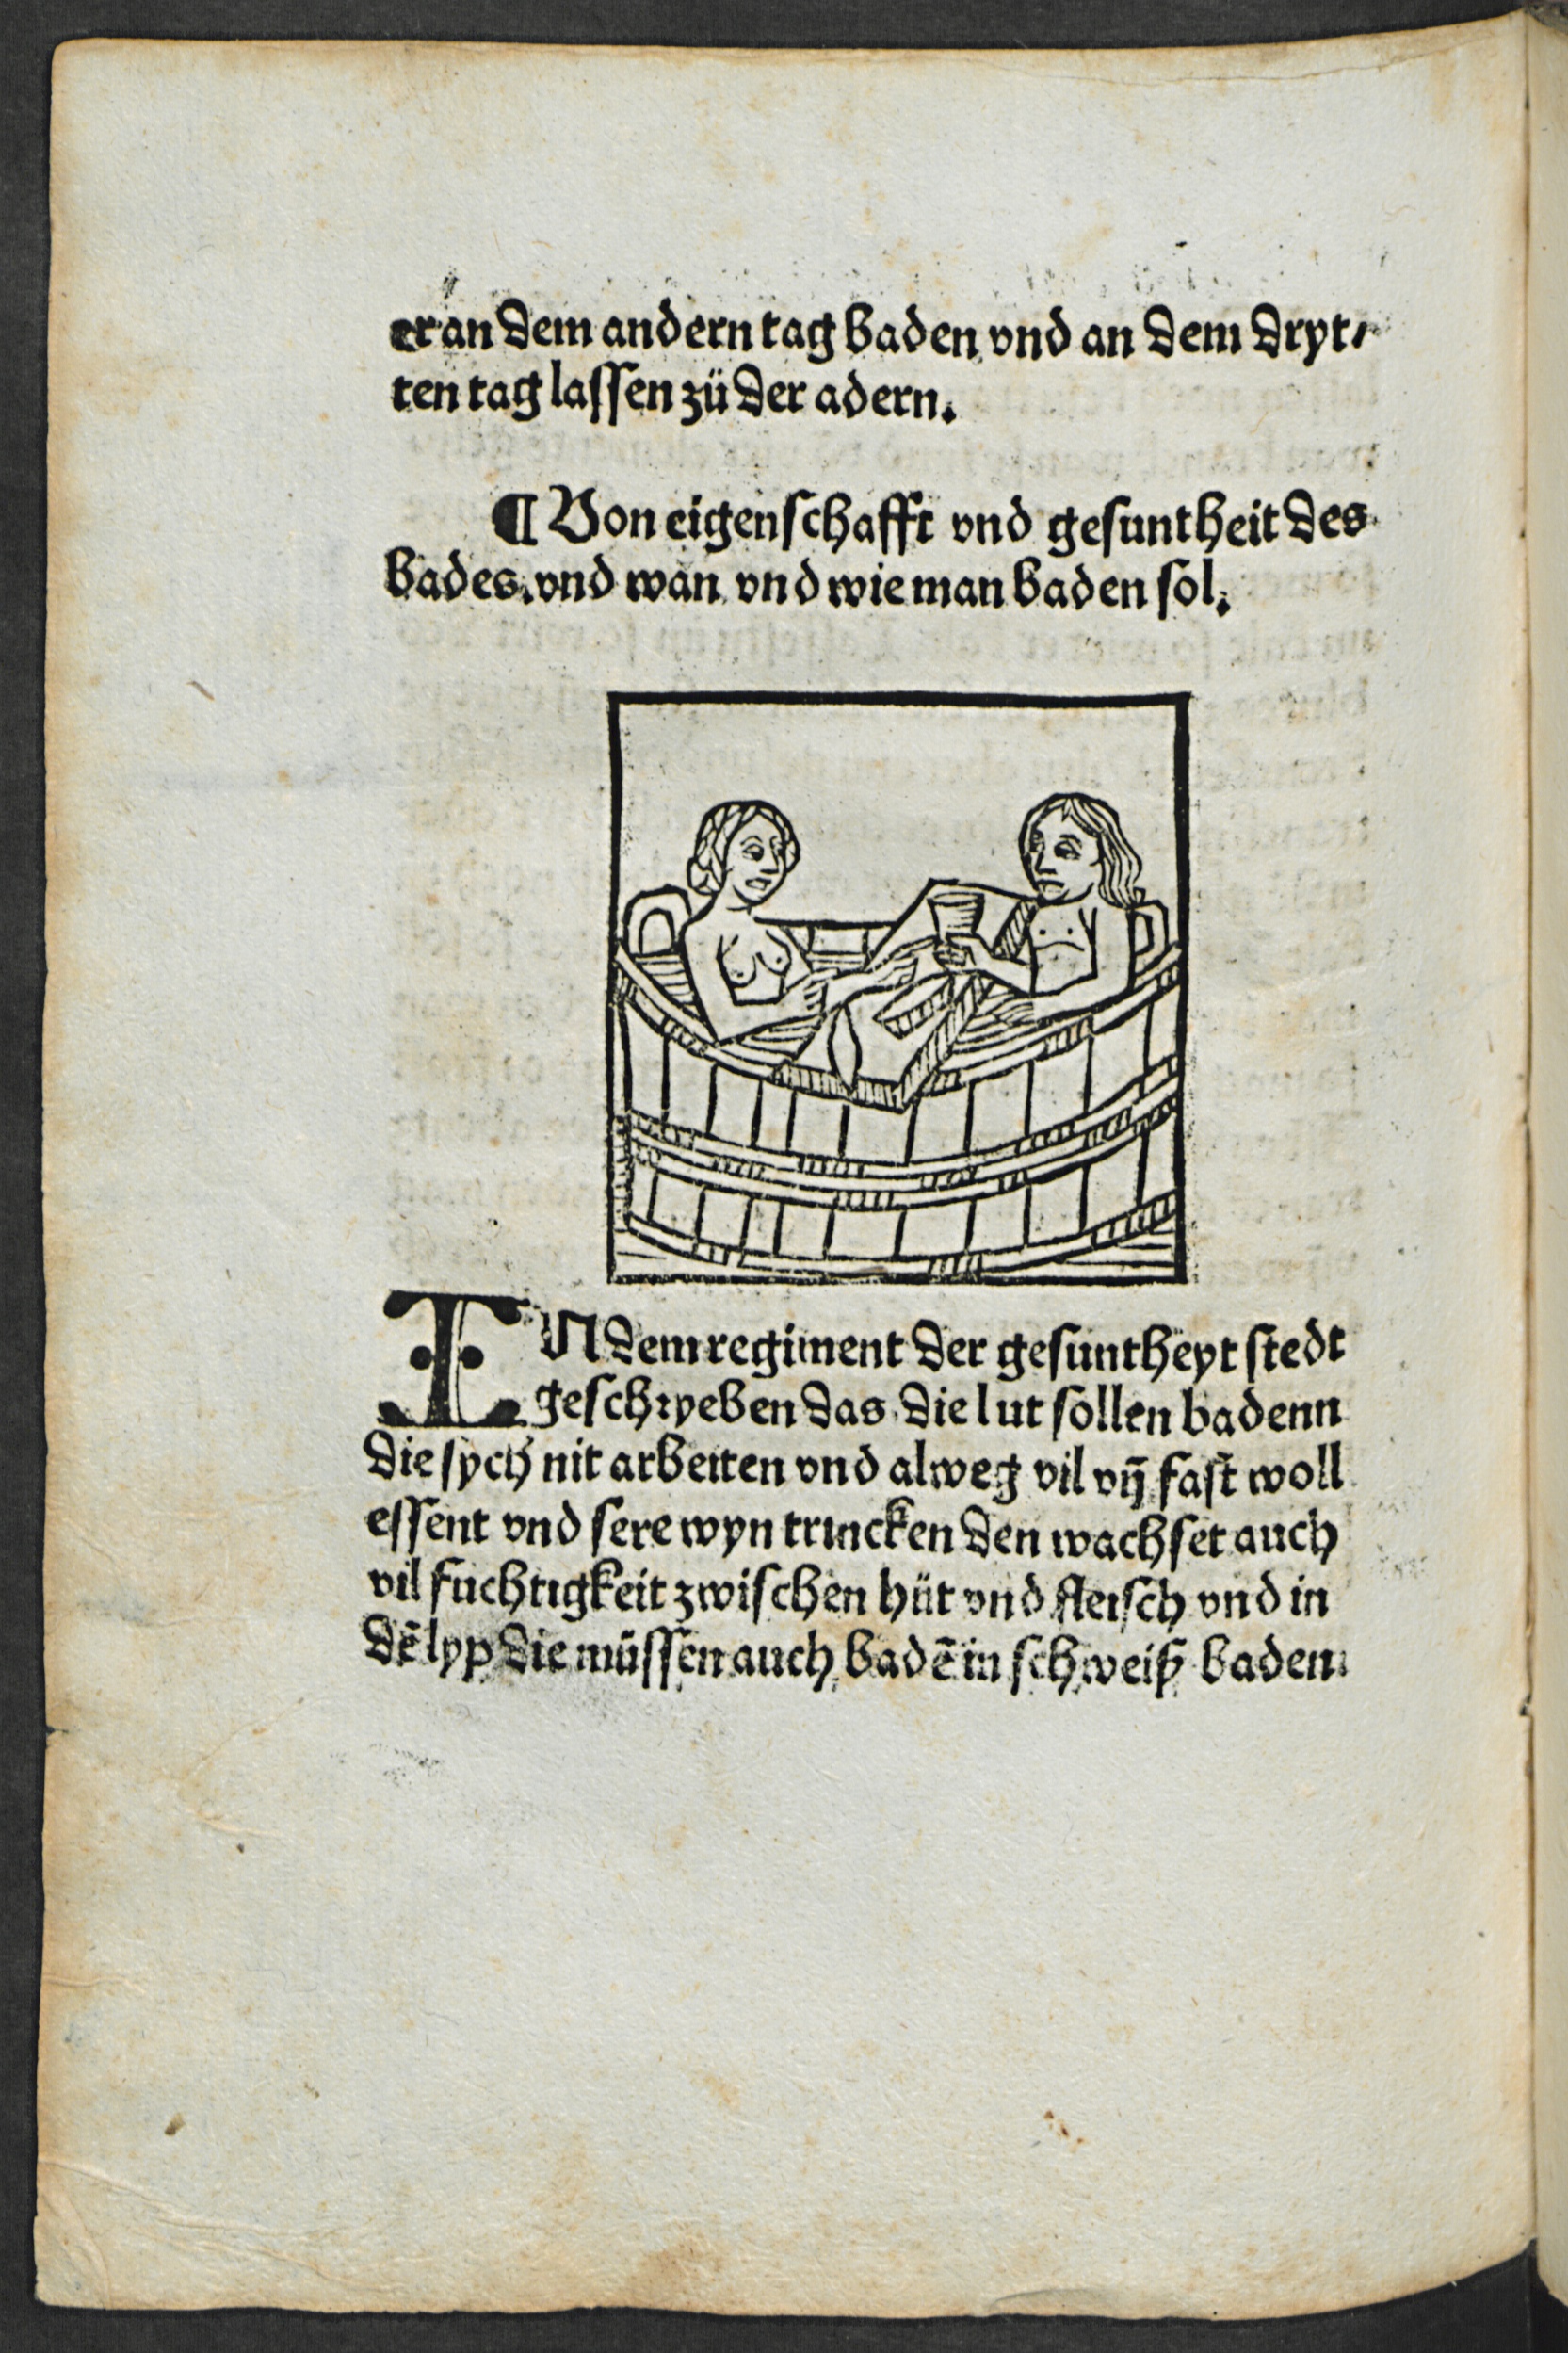 er an dem andern tag baden vnd an dem dryt⸗
ten tag lassen zü der adern.
¶ Von eigenschafft vnd gesuntheit des
bades. vnd wan vnd wie man baden sol.
IN dem regiment der gesuntheyt stedt
geschryeben das die lut sollen badenn
die sych nit arbeiten vnd alweg vil vñ fast woll
essent vnd sere wyn trincken den wachset auch
vil fuchtigkeit zwischen hüt vnd fleisch vnd in
dē lyp die müssen auch badē in schweiß baden